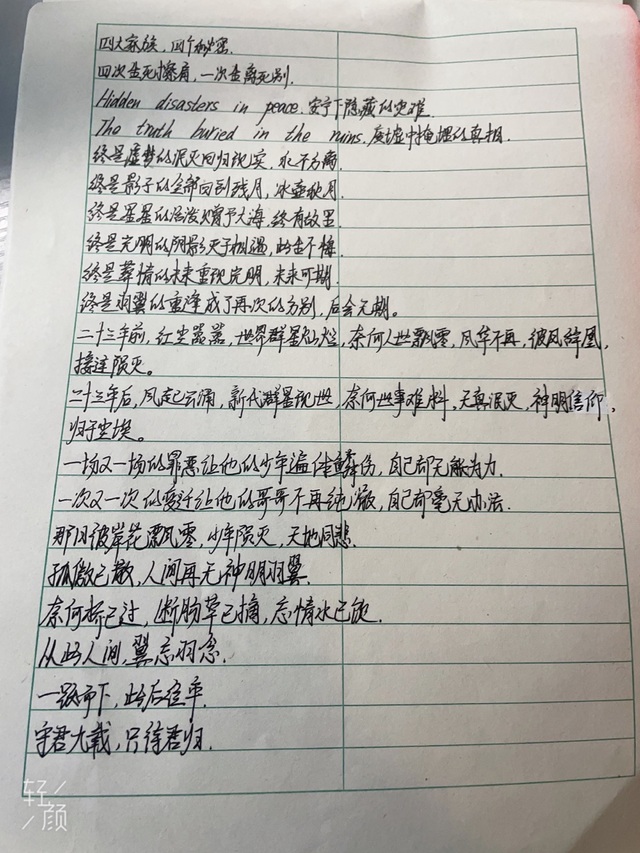 四大家族，四个秘密.
四次生死擦肩，一次生离死别.
Hidden disasters in peace.安宁下隐藏的灾难.
The truth buried in the ruins.废墟中掩埋的真相.
终是虚梦的泯灭回归现实，永不分离
终是影子的全部回到残月，冰壶秋月.
终是星星的活泼赠予大海，终有故里
终是光明的阴影灭于相遇，此生不悔.
终是葬情的未来重现光明，未来可期.
终是羽翼的重逢成了再次的分别，后会无期。
二十三年前，红尘嚣嚣，世界群星灿烂，奈何人世飘零，风华不再，彼凤辞凰，
接连陨灭。
二十三年后，风起云涌，新代群星现世，奈何世事难料，天真泯灭，神明信仰，
归于尘埃。
一场又一场的罪恶让他的少年遍体鳞伤，自己却无能为力.
一次又一次的变迁让他的哥哥不再纯澈，自己却毫无办法.
那日彼岸花飘零，少年陨灭，天地同悲.
孤傲已散，人间再无神明羽翼.
奈何桥已过，断肠草已摘，忘情水已饮.
从此人间，翼忘羽念.
一跃而下，此后往年.
守君九载，只待君归.
轻颜